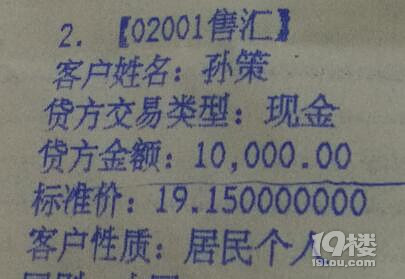 2. 【02001售汇】
客户姓名：孙策
贷方交易类型：现金
贷方金额：10,000.00
标准价：19.150000000
客户性质：居民个人
19楼
19lou.com